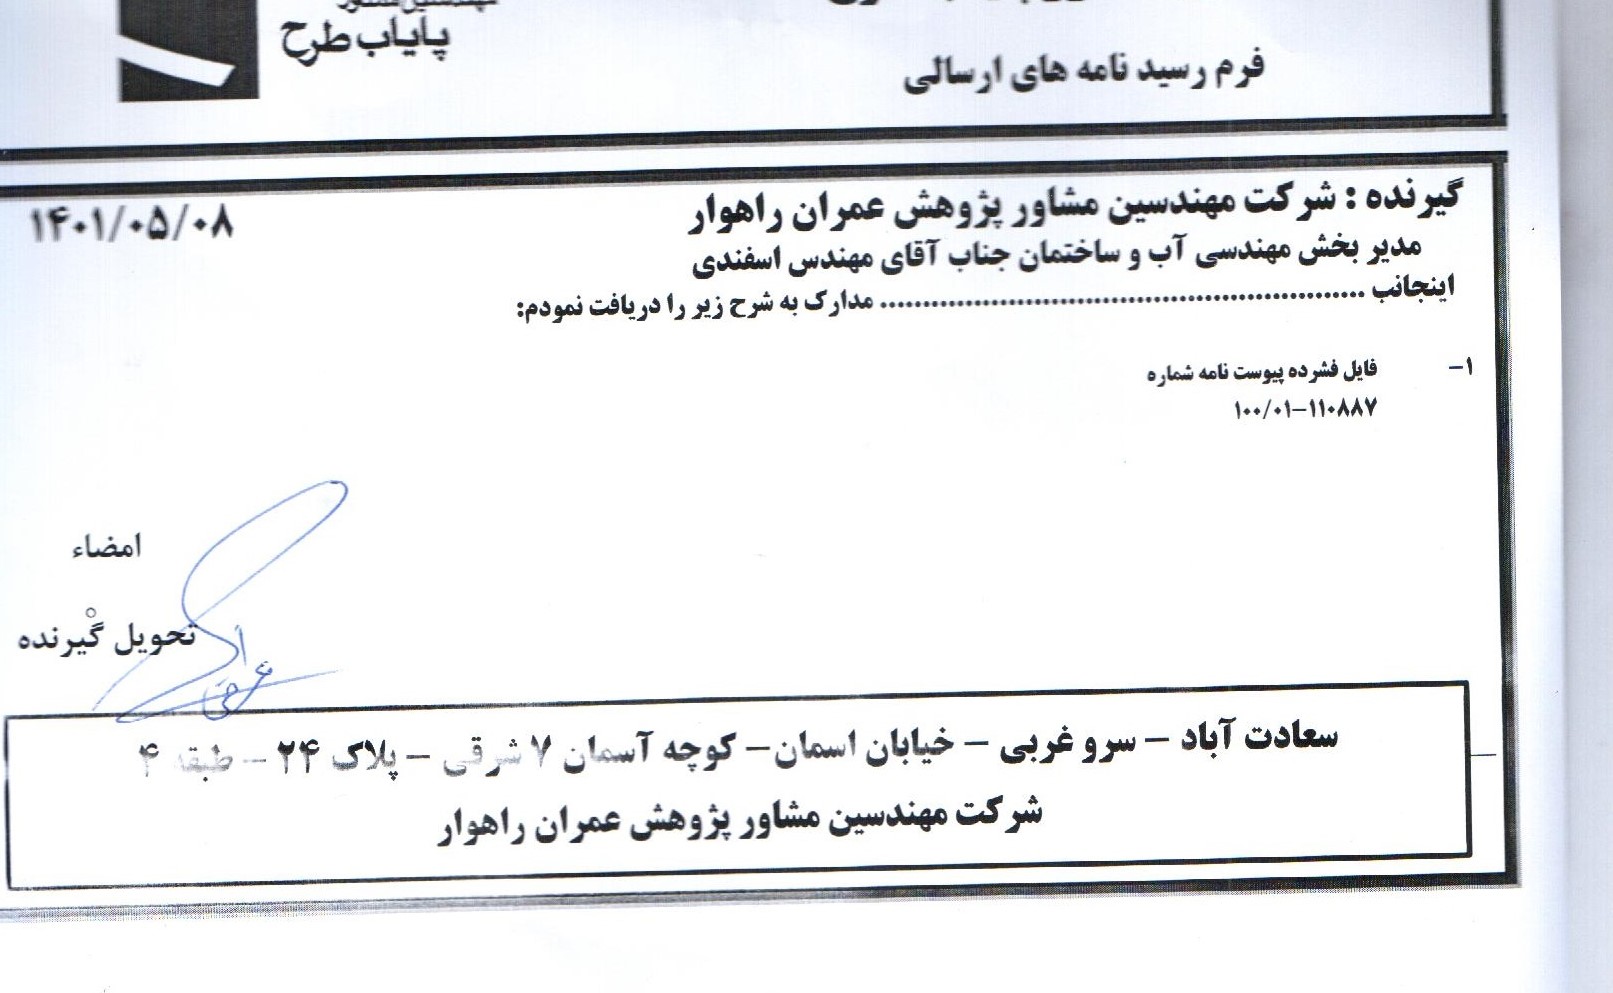 پایاب طرح
فرم رسید نامه های ارسالی
گیرنده : شرکت مهندسین مشاور پژوهش عمران راهوار
۱۴۰۱/۰۵/۰۸
مدیر بخش مهندسی آب و ساختمان جناب آقای مهندس اسفندی
اینجانب ........................................................ مدارک به شرح زیر را دریافت نمودم:
۱- فایل فشرده پیوست نامه شماره
۱۰۰/۰۱-۱۱۰۸۸۷
امضاء
تحویل گیرنده
سعادت آباد – سرو غربی – خیابان اسمان– کوچه آسمان ۷ شرقی – پلاک ۲۴ – طبقه ۴
شرکت مهندسین مشاور پژوهش عمران راهوار